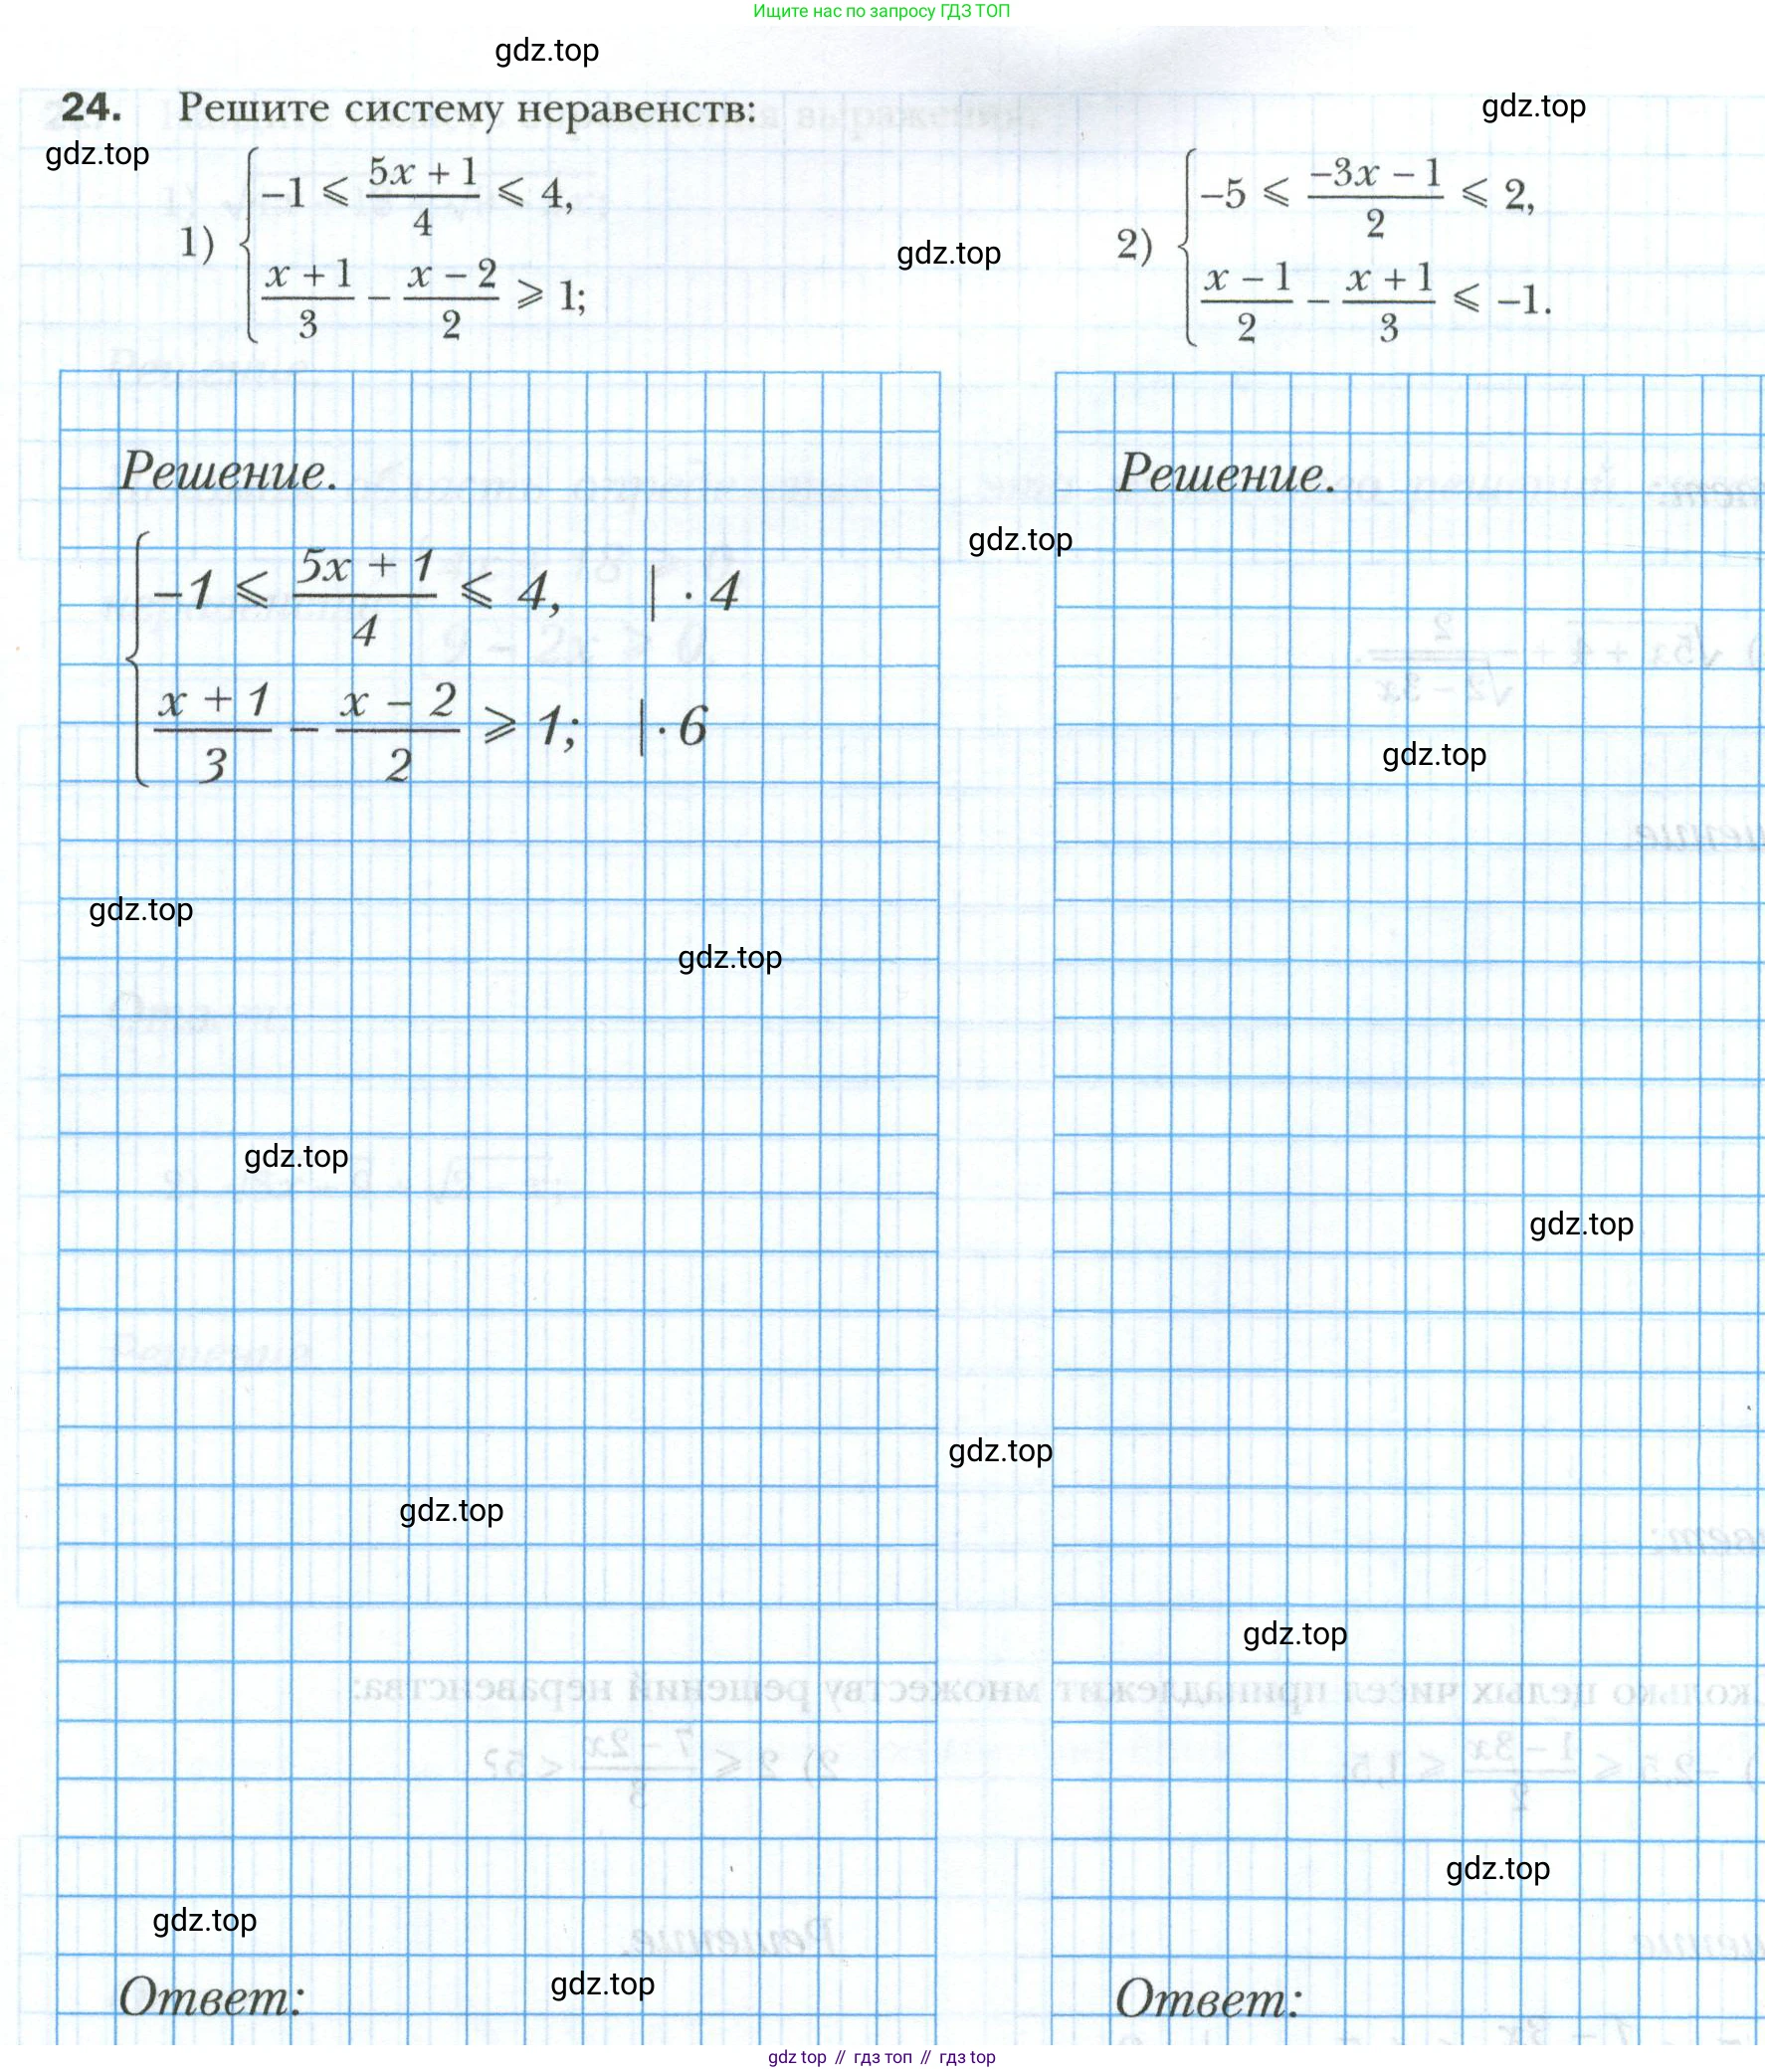 Ищите нас по запросу ГДЗ ТОП
gdz.top
24. Решите систему неравенств:
gdz.top
gdz.top
1) { –1 ⩽ (5x + 1)/4 ⩽ 4,
(x + 1)/3 – (x – 2)/2 ⩾ 1;
gdz.top
2) { –5 ⩽ (–3x – 1)/2 ⩽ 2,
(x – 1)/2 – (x + 1)/3 ⩽ –1.
Решение.
{ –1 ⩽ (5x + 1)/4 ⩽ 4, | · 4
(x + 1)/3 – (x – 2)/2 ⩾ 1; | · 6
Решение.
gdz.top
gdz.top
gdz.top
gdz.top
gdz.top
gdz.top
gdz.top
gdz.top
gdz.top
gdz.top
gdz.top
Ответ:
gdz.top
Ответ:
gdz top // гдз топ // гдз top